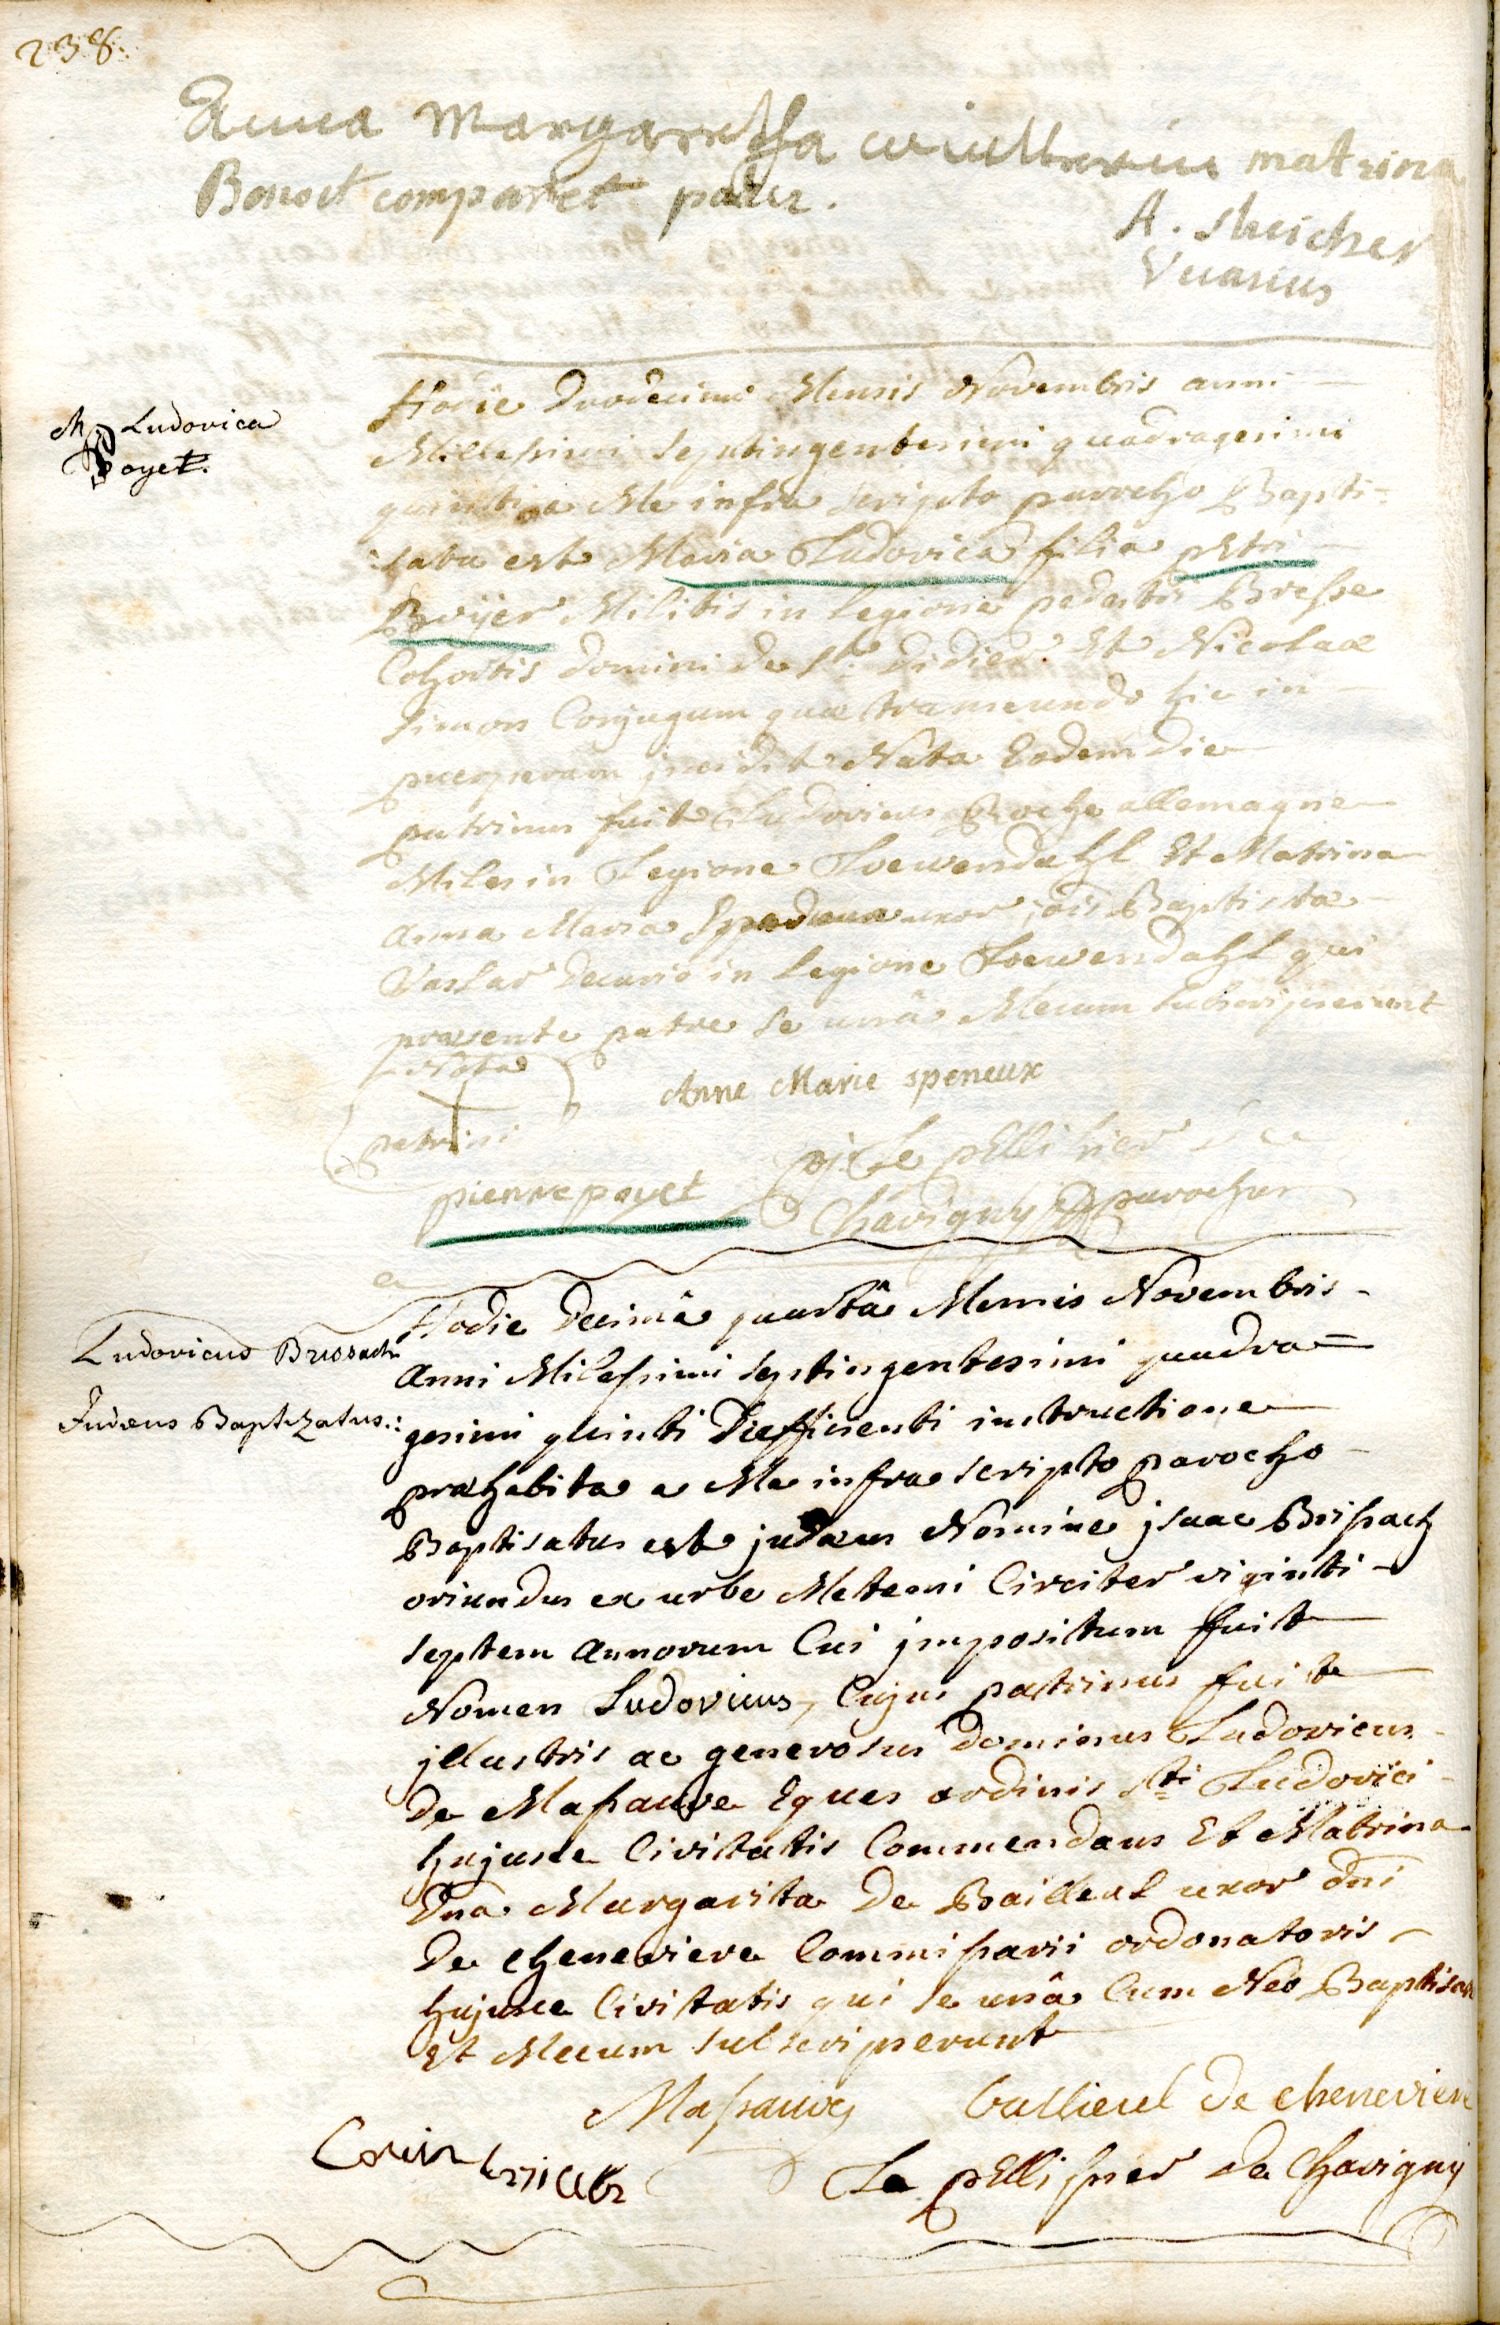 238.
Anna Margaretha matrina
Benoit comparet pater.
A. Sleicher
Vicarius
M Ludovica
Poyet.
Hodie duodecima Mensis Novembris anni
Millesimi septingentesimi quadragesimi
quinti a Me infra scripto parocho Bapti=
sata est Maria Ludovica filia petri
Militis in Legione pedestri Bresse
Cohortis domini de St. Didier Et Nicolaae
simon Conjugum quae transeundo hic in
puerperium jncidit Nata Eodem die
patrinus fuit Ludovicus Roche allemagne
Miles in Legione Loewendahl Et Matrina
Anna Maria uxor jois Baptistae
Vaslar decurio in Legione Loewendahl qui
praesente patre se unâ Mecum subscripserunt
Nota
patrini
Anne Marie speneux
pierre poyet
Le pellissier de
Chavigny parochus
Ludovicus Brissach
Judaeus Baptizatus.:
Hodie decimâ quartâ Mensis Novembris
Anni Milessimi septingentesimi quadra=
gesimi quinti Diefficienti instructione
praehabita a Me infra scripto parocho
Baptisatus est judaeus Nomine jsaac Brissach
oriundus ex urbe Metensi Circiter viginti
septem Annorum Cui jmpositum fuit
Nomen Ludovicus, Cujus patrinus fuit
jllustris ac generosus Dominus Ludovicus
de Massauve Eques ordinis Sti Ludovici
hujusce Civitatis Commendans Et Matrina
Dna Margarita de Bailleul uxor dni
de cheneviere Commissarii ordonatoris
hujusce Civitatis qui se unâ Cum Neo Baptisato
Et Mecum subscripserunt
Massauve Ballieul de cheneviere
Le pellissier de Chavigny